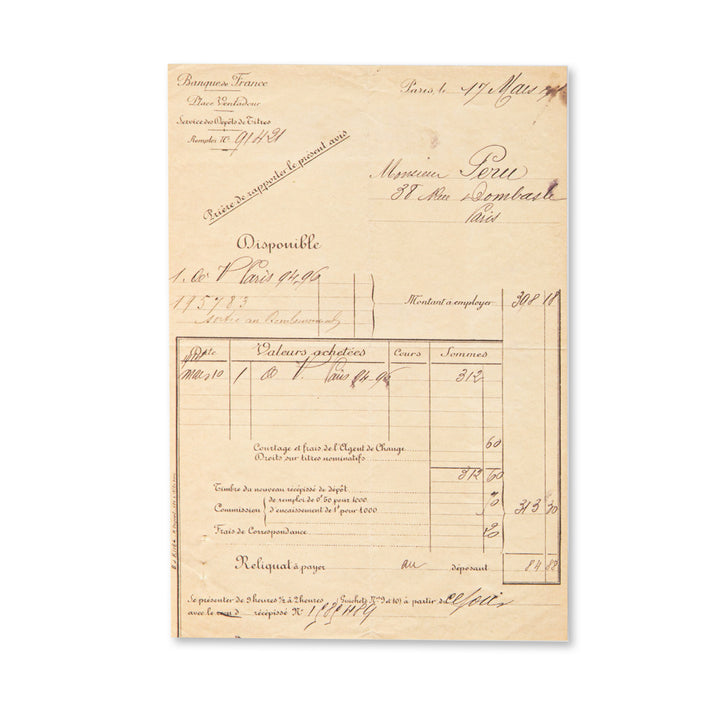 Banque de France
Place Ventadour
Service des Dépôts de Titres
Remploi N° 91421
Paris, le 17 Mars
Prière de rapporter le présent avis
Monsieur Peru
38 Rue Dombasle
Paris
Disponible
1. Oo V Paris 94.96
195783
sortie au
Montant à employer 308 18
Date Valeurs achetées Cours Sommes
Mars 10 1 Oo V. Paris 94-96 312
Courtage et frais de l'Agent de Change 60
Droits sur titres nominatifs
312 60
Timbre du nouveau récépissé de dépôt
Commission de remploi de 0f 50 pour 1000
d'encaissement de 1f pour 1.000
313 30
Frais de Correspondance
Reliquat à payer au déposant 84 88
Se présenter de 9 heures ½ à 2 heures (Guichets Nos 9 et 10) à partir de
avec le récépissé N°